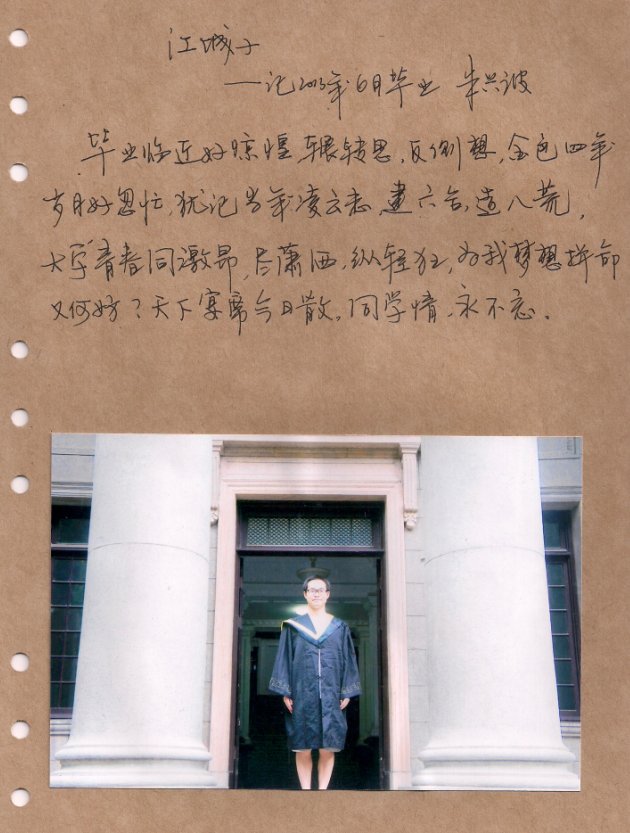 江城子
——记2013年6月毕业 朱兴波
毕业临近好惊惶,辗转思,反侧想,金色四年
岁月好匆忙,犹记当年凌云志,囊六合,造八荒,
大学青春同激昂,尽潇洒,纵轻狂,为我梦想拼命
又何妨?天下宴席今日散,同学情,永不忘.